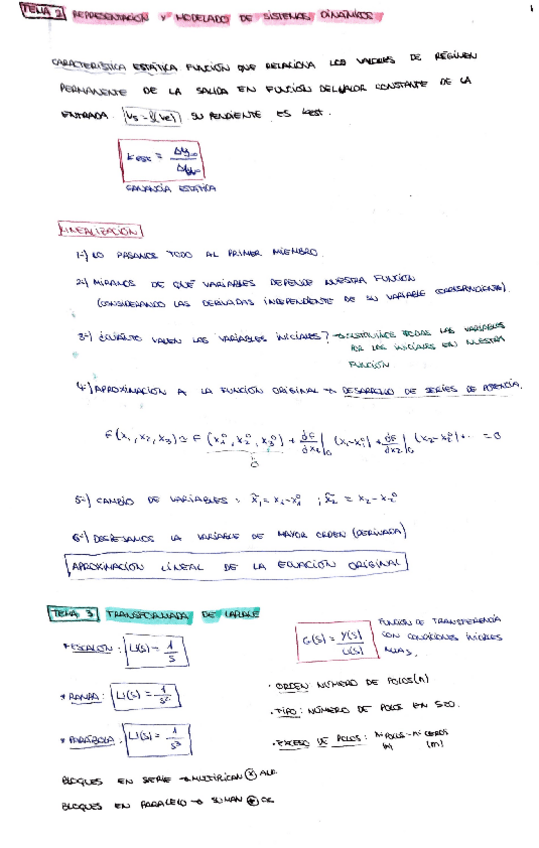 TEMA 2 REPRESENTACIÓN Y MODELADO DE SISTEMAS DINÁMICOS
CARACTERÍSTICA ESTÁTICA FUNCIÓN QUE RELACIONA LOS VALORES DE RÉGIMEN
PERMANENTE DE LA SALIDA EN FUNCIÓN DEL VALOR CONSTANTE DE LA
ENTRADA. SU PENDIENTE ES kest.
kest =
GANANCIA ESTÁTICA
LINEALIZACIÓN
1-) LO PASAMOS TODO AL PRIMER MIEMBRO.
2-) MIRAMOS DE QUÉ VARIABLES DEPENDE NUESTRA FUNCIÓN
(CONSIDERANDO LAS DERIVADAS INDEPENDIENTE DE SU VARIABLE CORRESPONDIENTE).
3-) ¿CUÁNTO VALEN LAS VARIABLES INICIALES? → SUSTITUIMOS TODAS LAS VARIABLES
POR LAS INICIALES EN NUESTRA
FUNCIÓN
4-) APROXIMACIÓN A LA FUNCIÓN ORIGINAL → DESARROLLO DE SERIES DE POTENCIA.
F(x₁, x₂, x₃) ≈ F(x₁⁰, x₂⁰, x₃⁰) + dF/dx₁|₀ (x₁-x₁⁰) + dF/dx₂|₀ (x₂-x₂⁰) + ... = 0
0
5-) CAMBIO DE VARIABLES: x̃₁ = x₁-x₁⁰ ; x̃₂ = x₂-x₂⁰
6-) DESPEJAMOS LA VARIABLE DE MAYOR ORDEN (DERIVADA)
APROXIMACIÓN LINEAL DE LA ECUACIÓN ORIGINAL
TEMA 3 TRANSFORMADA DE LAPLACE
* ESCALÓN: U(s) = 1/s
* RAMPA: U(s) = 1/s²
* PARÁBOLA: U(s) = 1/s³
BLOQUES EN SERIE → MULTIPLICAN ⊗
BLOQUES EN PARALELO → SUMAN ⊕
G(s) = Y(s)/U(s)
FUNCIÓN DE TRANSFERENCIA
CON CONDICIONES INICIALES
NULAS.
· ORDEN: NÚMERO DE POLOS (n)
· TIPO: NÚMERO DE POLOS EN S=0.
· EXCESO DE POLOS: nºPOLOS - nºCEROS
(n) (m)